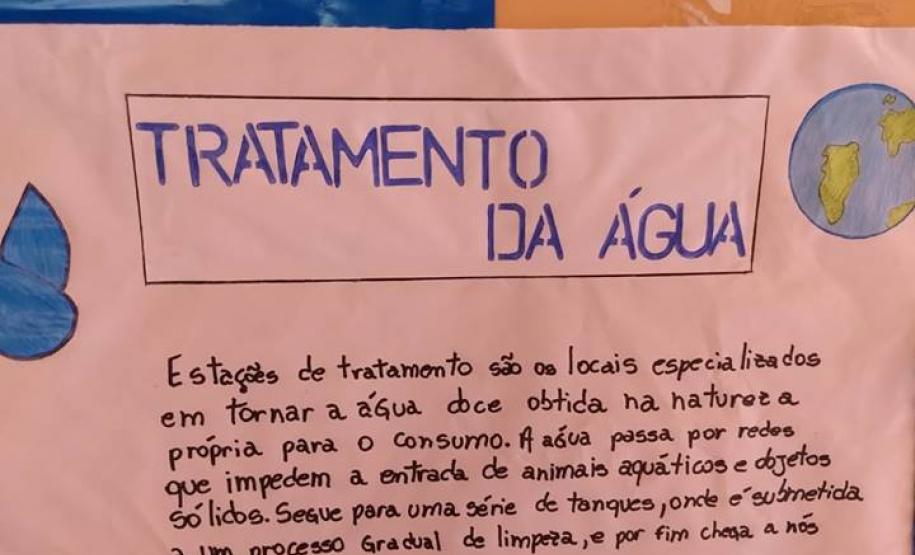 TRATAMENTO
DA ÁGUA
Estações de tratamento são os locais especializados
em tornar a água doce obtida na natureza
própria para o consumo. A água passa por redes
que impedem a entrada de animais aquáticos e objetos
sólidos. Segue para uma série de tanques, onde é submetida
a um processo Gradual de limpeza, e por fim chega a nós